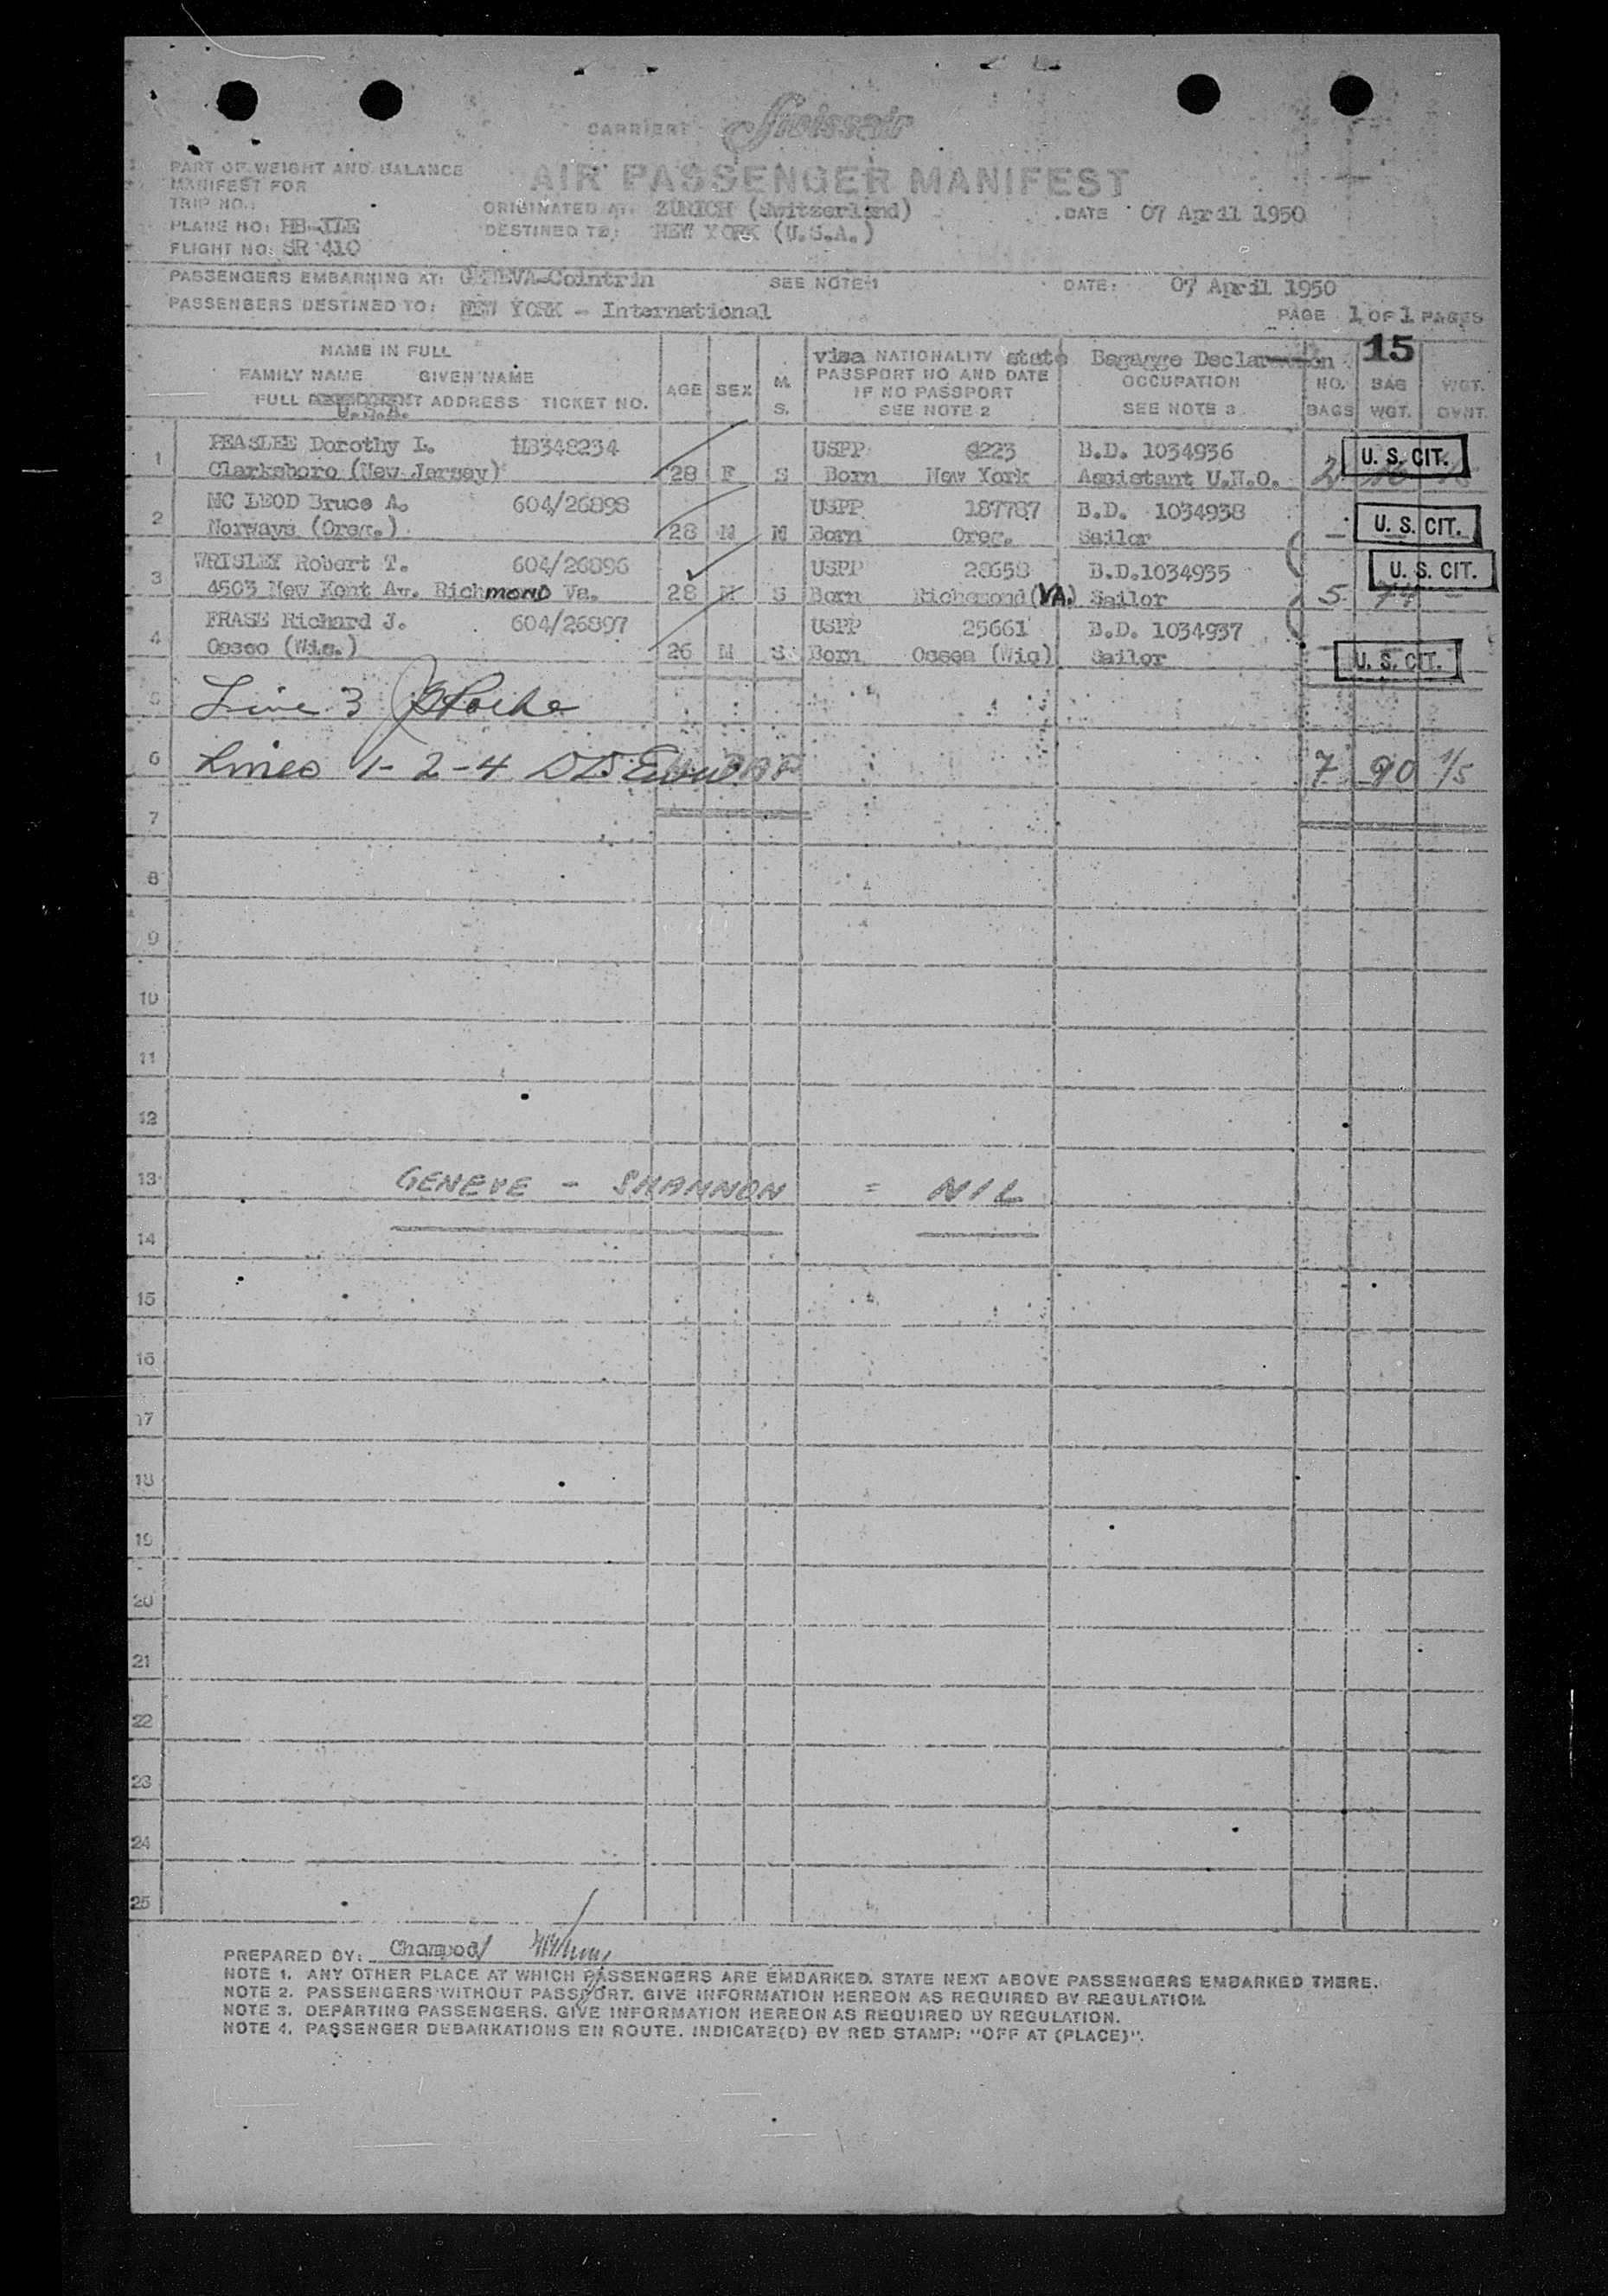 CARRIER: Swissair
PART OF WEIGHT AND BALANCE
MANIFEST FOR
AIR PASSENGER MANIFEST
TRIP NO.:
ORIGINATED AT: ZURICH (Switzerland)
DATE 07 April 1950
PLANE NO: HB-ILE
DESTINED TO: NEW YORK (U.S.A.)
FLIGHT NO: SR 410
PASSENGERS EMBARKING AT: GENEVA-Cointrin SEE NOTE 1 DATE: 07 April 1950
PASSENGERS DESTINED TO: NEW YORK - International
PAGE 1 OF 1 PAGES
15
NAME IN FULL
FAMILY NAME GIVEN NAME
FULL ADDRESS TICKET NO.
U.S.A.
AGE SEX M. S.
visa NATIONALITY state
PASSPORT NO AND DATE
IF NO PASSPORT
SEE NOTE 2
Bagagge Declaration
OCCUPATION
SEE NOTE 3
NO. BAGS
BAG WGT.
WGT.
1 PEASLEE Dorothy L. 348234 USPP 223 B.D. 1034936 U. S. CIT.
Clarksboro (New Jersey) 28 F S Born New York Assistant U.N.O. 2
2 MC LEOD Bruce A. 604/26898 USPP 187787 B.D. 1034938 U. S. CIT.
Norways (Oreg.) 28 M M Born Oreg. Sailor
3 WRISLEY Robert T. 604/26896 USPP 28658 B.D.1034935 U. S. CIT.
4503 New Kent Av. Richmond Va. 28 M S Born Richmond (VA.) Sailor 5 74
4 FRASE Richard J. 604/26897 USPP 25661 B.D. 1034937
Osseo (Wis.) 26 M S Born Ossea (Wis) Sailor U. S. CIT.
5 Line 3
6 Lines 1-2-4 7 90 1/5
7
8
9
10
11
12
13 GENEVE - SHANNON = NIL
14
15
16
17
18
19
20
21
22
23
24
25
PREPARED BY: Champod
NOTE 1. ANY OTHER PLACE AT WHICH PASSENGERS ARE EMBARKED. STATE NEXT ABOVE PASSENGERS EMBARKED THERE.
NOTE 2. PASSENGERS WITHOUT PASSPORT. GIVE INFORMATION HEREON AS REQUIRED BY REGULATION.
NOTE 3. DEPARTING PASSENGERS. GIVE INFORMATION HEREON AS REQUIRED BY REGULATION.
NOTE 4. PASSENGER DEBARKATIONS EN ROUTE. INDICATE(D) BY RED STAMP: "OFF AT (PLACE)".